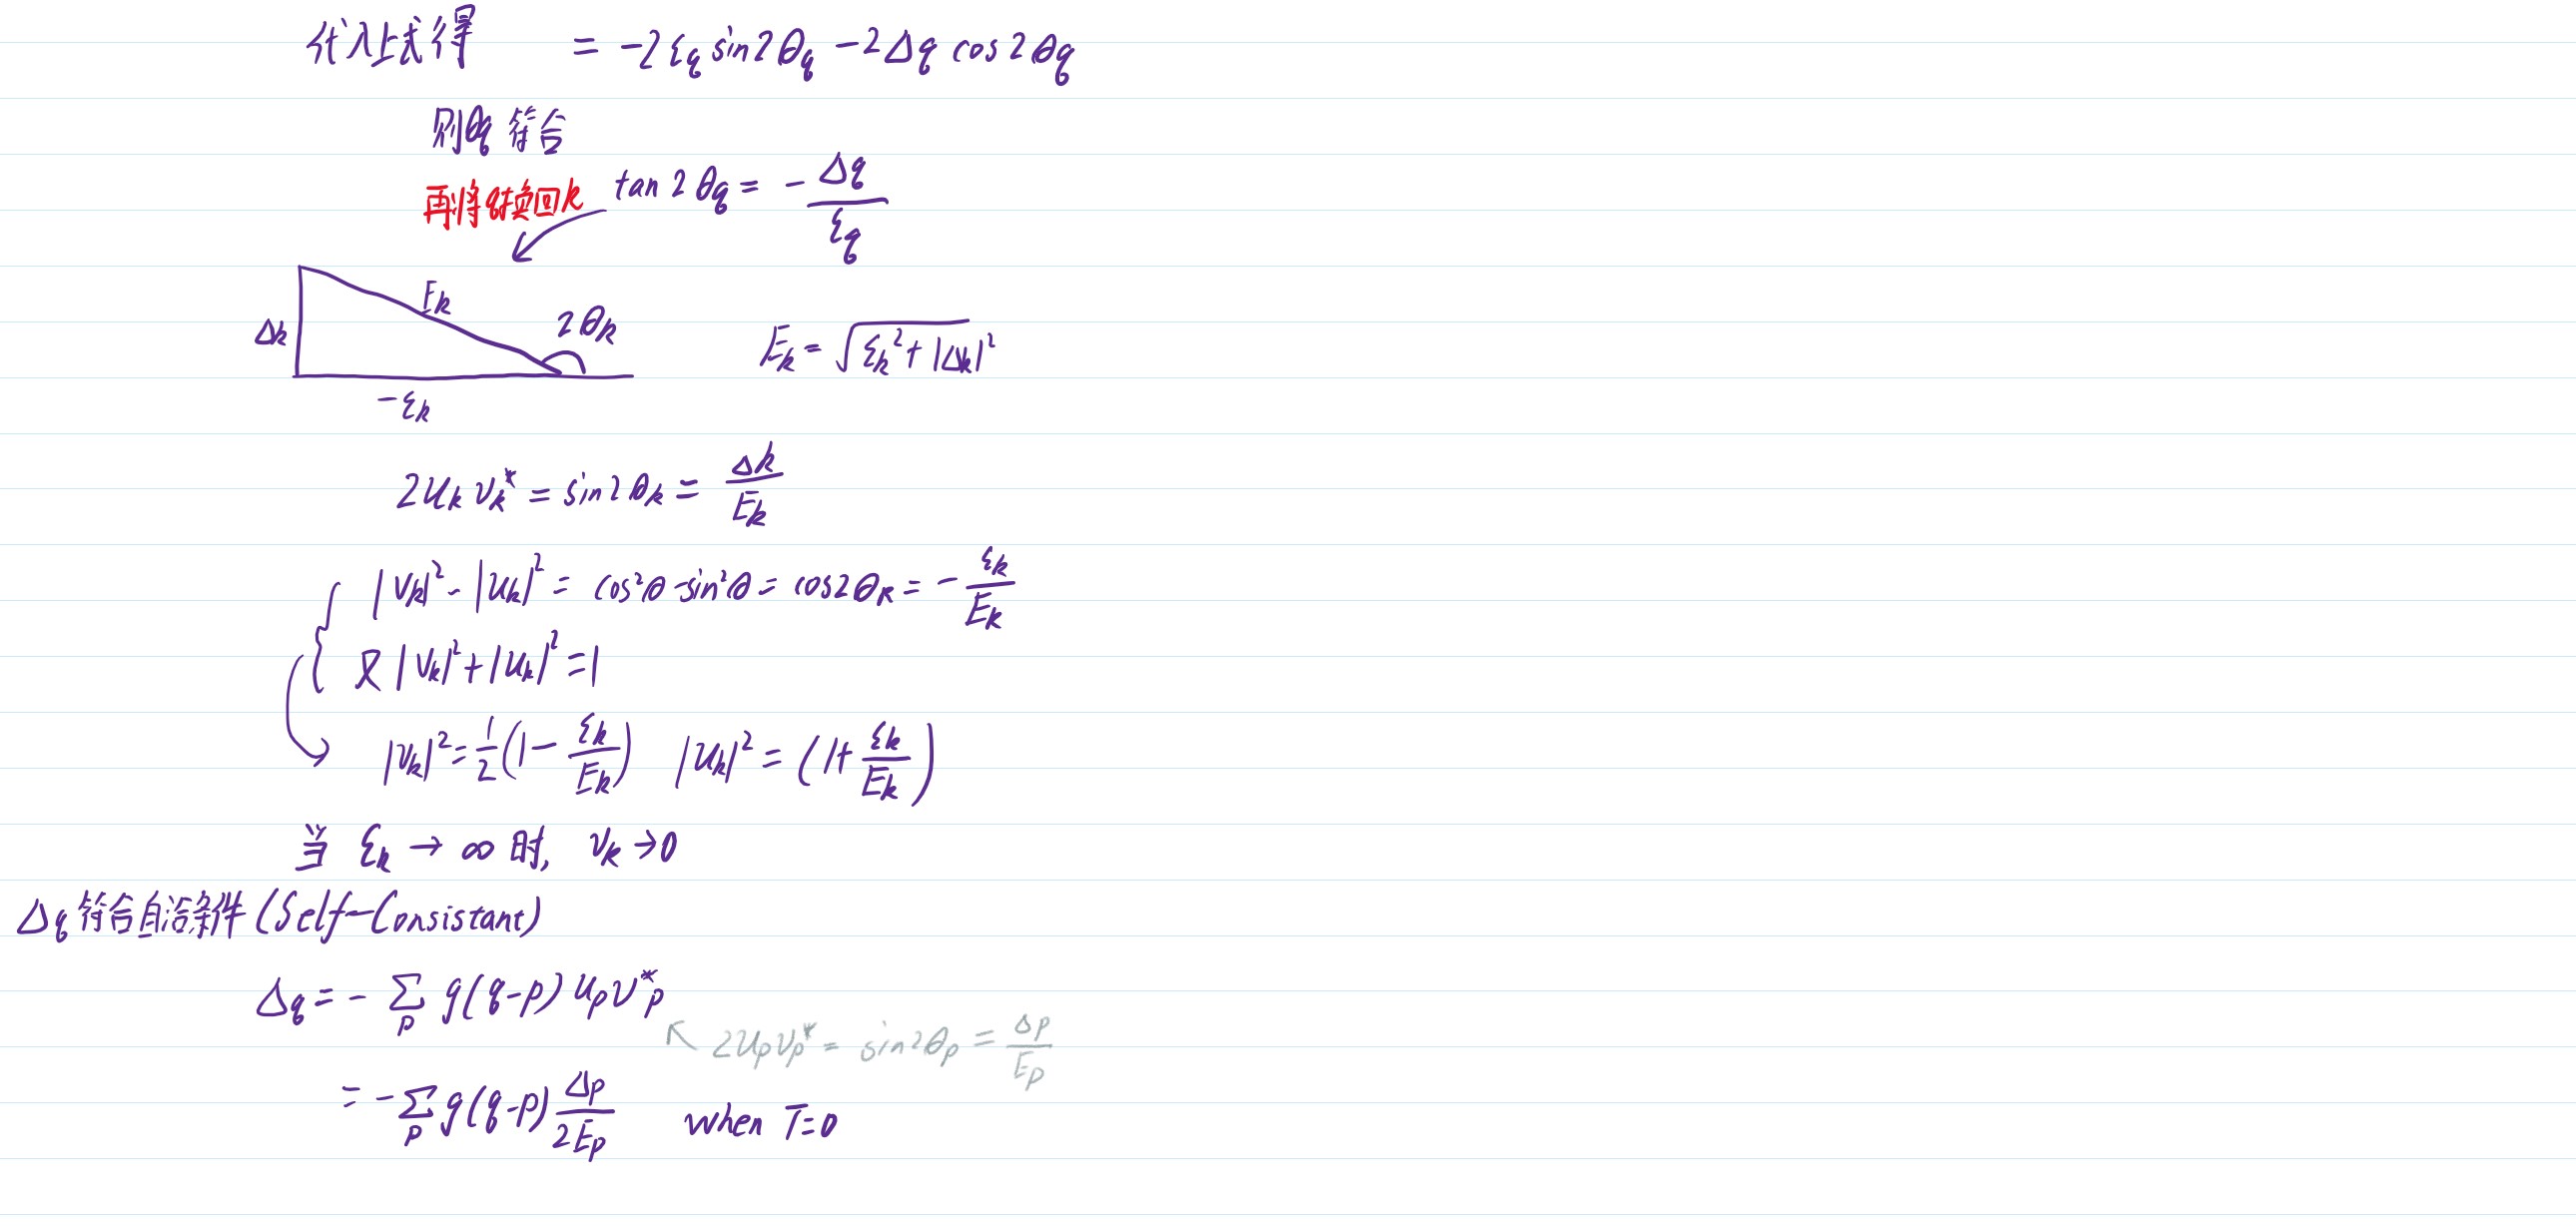 代入上式得 = -2ξ_q sin2θ_q - 2Δ_q cos2θ_q
则θ_q 符合
再将q换回k tan2θ_q = - Δ_q/ξ_q
Δ_k E_k 2θ_k E_k = √(ξ_k² + |Δ_k|²)
-ξ_k
2u_k v_k* = sin2θ_k = Δ_k/E_k
|v_k|² - |u_k|² = cos²θ - sin²θ = cos2θ_k = - ξ_k/E_k
又 |v_k|² + |u_k|² = 1
|v_k|² = 1/2(1 - ξ_k/E_k) |u_k|² = (1 + ξ_k/E_k)
当 ξ_k → ∞ 时, v_k → 0
Δ_q 符合自洽条件 (Self-Consistant)
Δ_q = - Σ_p g(q-p) u_p v*_p
↖ 2u_p v_p* = sin2θ_p = Δ_p/E_p
= - Σ_p g(q-p) Δ_p/2E_p when T=0